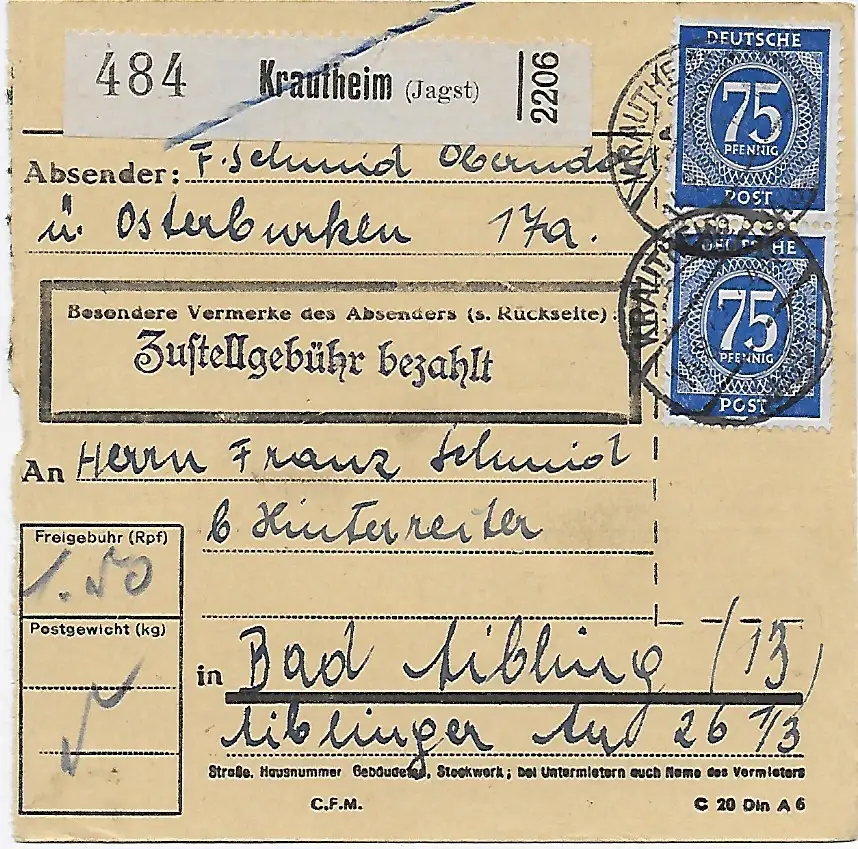 484 Krautheim (Jagst) 2206
DEUTSCHE
75
PFENNIG
POST
KRAUTHE
Absender: F. Schmid Obernd
ü. Osterburken 17a.
DEUTSCHE
75
PFENNIG
POST
KRAUTHEIM
Besondere Vermerke des Absenders (s. Rückseite):
Zustellgebühr bezahlt
An Herrn Franz Schmid
b Hinterreiter
Freigebühr (Rpf)
1.50
Postgewicht (kg)
in Bad Aibling (13
Aiblinger Au 26 1/3
Straße, Hausnummer Gebäudeteil, Stockwerk; bei Untermietern auch Name des Vermieters
C.F.M.
C 20 Din A 6